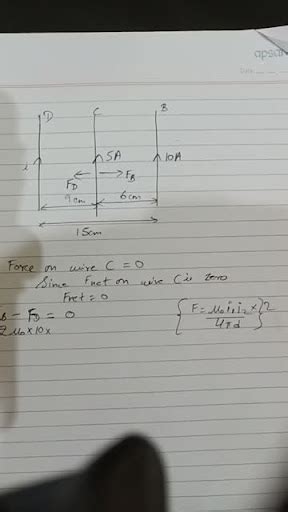 apsar
Date
D C B
i 5A 10A
FD FB
9cm 6cm
15cm
Force on wire C = 0
Since Fnet on wire C is zero
Fnet = 0
B - FD = 0
2μ0 × 10 ×
{ F = μ0 i1 i2 × 2 }
4πd